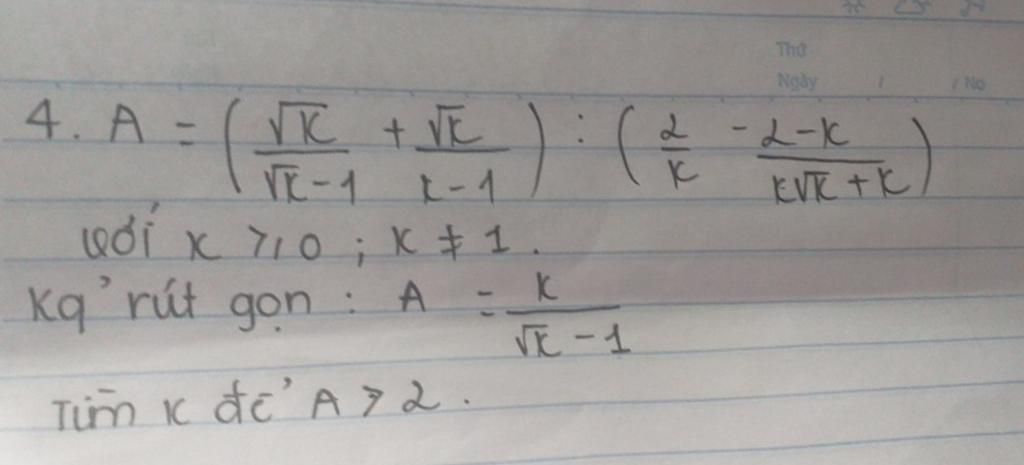 Thứ
Ngày / / No
4. A = (√x/(√x-1) + √x/(x-1)) : (2/x - (2-x)/(x√x+x))
với x ≥ 0 ; x ≠ 1.
Kq' rút gọn : A = x/(√x-1)
Tìm x để A > 2.